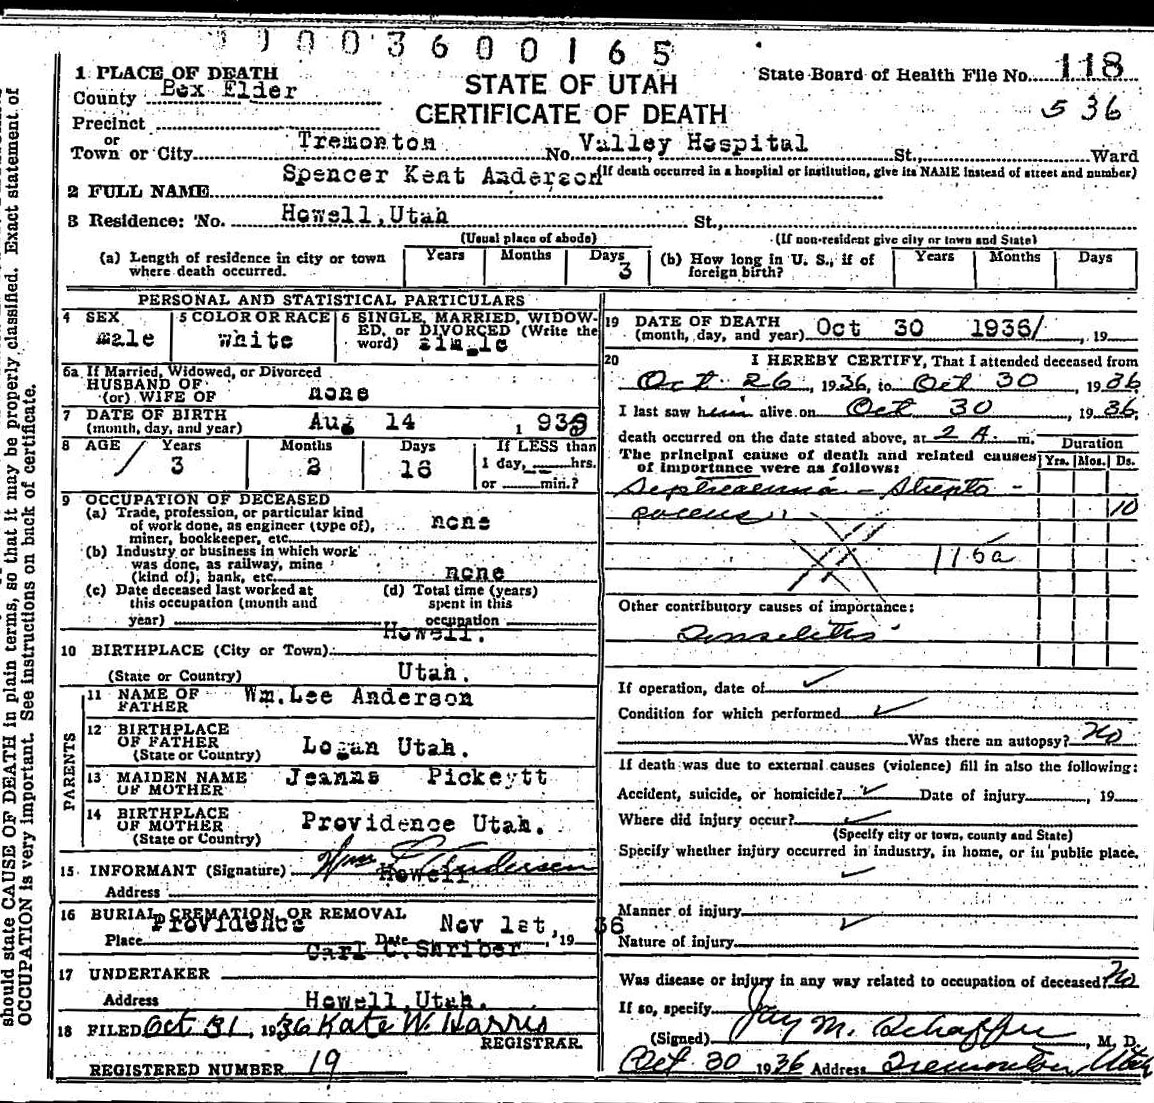 0003600165
1 PLACE OF DEATH
STATE OF UTAH
State Board of Health File No. 118
County Box Elder
CERTIFICATE OF DEATH
536
Precinct
or
Town or City Tremonton No. Valley Hospital St., Ward
(If death occurred in a hospital or institution, give its NAME instead of street and number)
2 FULL NAME Spencer Kent Anderson
3 Residence: No. Howell, Utah St.,
(Usual place of abode) (If non-resident give city or town and State)
(a) Length of residence in city or town where death occurred. Years Months Days 3
(b) How long in U. S., if of foreign birth? Years Months Days
PERSONAL AND STATISTICAL PARTICULARS
4 SEX male
5 COLOR OR RACE white
6 SINGLE, MARRIED, WIDOW-
ED, or DIVORCED (Write the
word) single
6a If Married, Widowed, or Divorced
HUSBAND OF
(or) WIFE OF none
7 DATE OF BIRTH
(month, day, and year) Aug 14 193
8 AGE Years Months Days If LESS than
3 2 16 1 day, hrs.
or min.?
9 OCCUPATION OF DECEASED
(a) Trade, profession, or particular kind
of work done, as engineer (type of),
miner, bookkeeper, etc. none
(b) Industry or business in which work
was done, as railway, mine
(kind of), bank, etc. none
(c) Date deceased last worked at
this occupation (month and
year)
(d) Total time (years)
spent in this
occupation
10 BIRTHPLACE (City or Town) Howell.
(State or Country) Utah.
PARENTS
11 NAME OF
FATHER Wm. Lee Anderson
12 BIRTHPLACE
OF FATHER
(State or Country) Logan Utah.
13 MAIDEN NAME
OF MOTHER Jeanns Pickeytt
14 BIRTHPLACE
OF MOTHER
(State or Country) Providence Utah.
15 INFORMANT (Signature) Wm L Anderson
Address Howell
16 BURIAL, CREMATION, OR REMOVAL
Place Providence Date Nov 1st, , 19 36
17 UNDERTAKER Carl C. Shriber
Address Howell Utah.
18 FILED Oct 31, 1936 Kate W. Harris
REGISTRAR
REGISTERED NUMBER 19
19 DATE OF DEATH
(month, day, and year) Oct 30 1936/ , 19
20 I HEREBY CERTIFY, That I attended deceased from
Oct 26, 1936, to Oct 30, 1936
I last saw him alive on Oct 30, 1936,
death occurred on the date stated above, at 2 A. m. Duration
The principal cause of death and related causes Yrs. Mos. Ds.
of importance were as follows:
Septicaemia - Strepto -
coccus. 10
115a
Other contributory causes of importance:
Tonsilitis
If operation, date of ✓
Condition for which performed ✓
Was there an autopsy? No
If death was due to external causes (violence) fill in also the following:
Accident, suicide, or homicide? ✓ Date of injury , 19
Where did injury occur? ✓
(Specify city or town, county and State)
Specify whether injury occurred in industry, in home, or in public place.
✓
Manner of injury ✓
Nature of injury
Was disease or injury in any way related to occupation of deceased? No
If so, specify
(Signed) Jay M. Schaffer, M. D.
Oct 30 1936 Address Tremonton Utah
should state CAUSE OF DEATH in plain terms, so that it may be properly classified. Exact statement of
OCCUPATION is very important. See instructions on back of certificate.